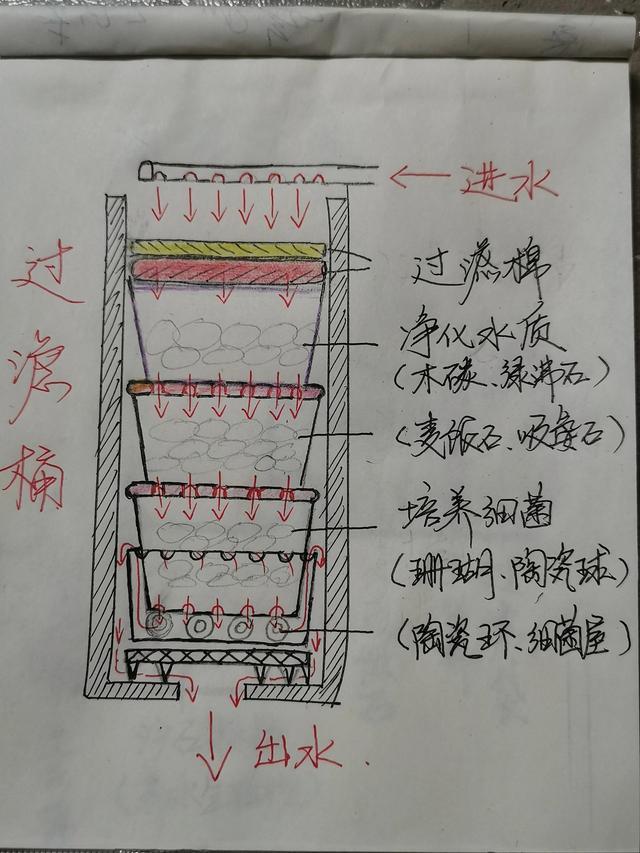 进水
过滤桶
过滤棉
净化水质
(木碳、绿沸石)
(麦饭石、吸氨石)
培养细菌
(珊瑚月、陶瓷球)
(陶瓷环、细菌屋)
出水.